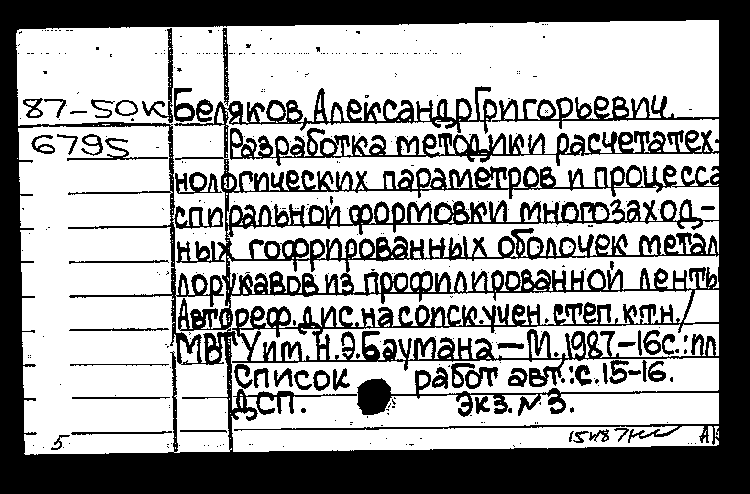 87-50К Беляков, Александр Григорьевич.
6795 Разработка методики расчета тех-
нологических параметров и процесса
спиральной формовки многозаход-
ных гофрированных оболочек метал
лорукавов из профилированной ленты
Автореф. дис. на соиск. учен. степ. к.т.н./
МВТУ им. Н.Э. Баумана. — М., 1987. - 16с.: ил
Список работ авт.: с. 15-16.
ДСП. Экз. № 3.
5